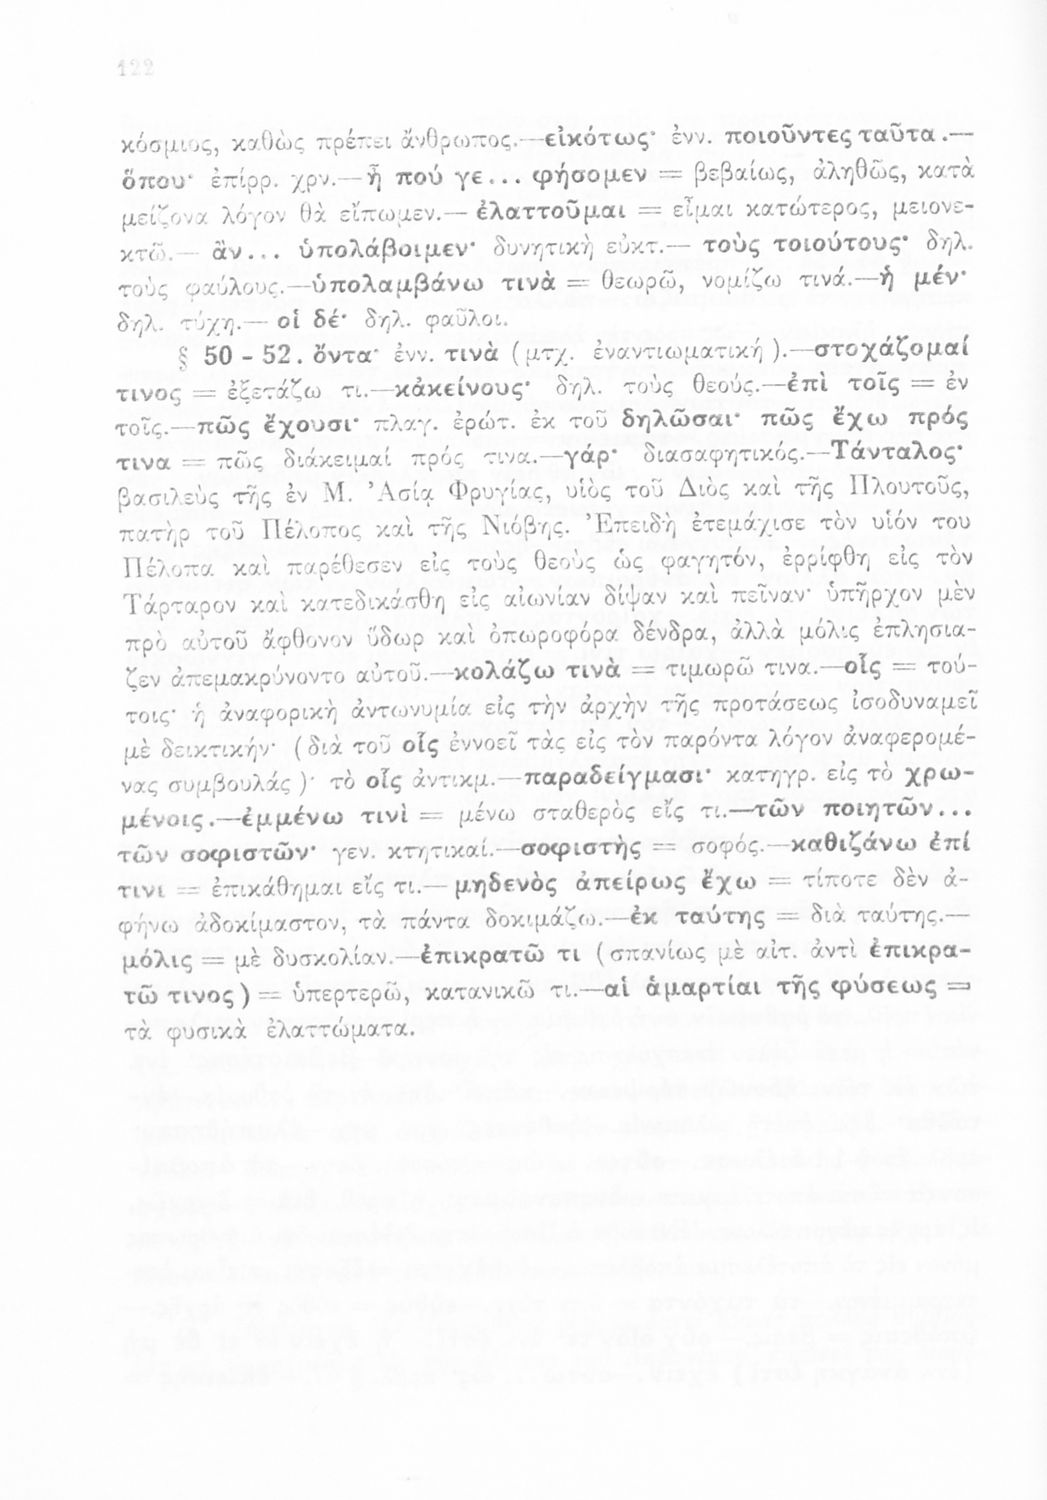 122
κόσμιος, καθὼς πρέπει ἄνθρωπος.—εἰκότως· ἐνν. ποιοῦντες ταῦτα.—
ὅπου· ἐπίρρ. χρν.—ἦ πού γε... φήσομεν = βεβαίως, ἀληθῶς, κατὰ
μείζονα λόγον θὰ εἴπωμεν.— ἐλαττοῦμαι = εἶμαι κατώτερος, μειονε-
κτῶ.— ἂν... ὑπολάβοιμεν· δυνητικὴ εὐκτ.— τοὺς τοιούτους· δηλ.
τοὺς φαύλους.—ὑπολαμβάνω τινὰ = θεωρῶ, νομίζω τινά.—ἡ μέν·
δηλ. τύχη.— οἱ δέ· δηλ. φαῦλοι.
§ 50 - 52. ὄντα· ἐνν. τινὰ (μτχ. ἐναντιωματική ).—στοχάζομαί
τινος = ἐξετάζω τι.—κἀκείνους· δηλ. τοὺς θεούς.—ἐπὶ τοῖς = ἐν
τοῖς.—πῶς ἔχουσι· πλαγ. ἐρώτ. ἐκ τοῦ δηλῶσαι· πῶς ἔχω πρός
τινα = πῶς διάκειμαί πρός τινα.—γάρ· διασαφητικός.—Τάνταλος·
βασιλεὺς τῆς ἐν Μ. Ἀσίᾳ Φρυγίας, υἱὸς τοῦ Διὸς καὶ τῆς Πλουτοῦς,
πατὴρ τοῦ Πέλοπος καὶ τῆς Νιόβης. Ἐπειδὴ ἐτεμάχισε τὸν υἱόν του
Πέλοπα καὶ παρέθεσεν εἰς τοὺς θεοὺς ὡς φαγητόν, ἐρρίφθη εἰς τὸν
Τάρταρον καὶ κατεδικάσθη εἰς αἰωνίαν δίψαν καὶ πεῖναν· ὑπῆρχον μὲν
πρὸ αὐτοῦ ἄφθονον ὕδωρ καὶ ὀπωροφόρα δένδρα, ἀλλὰ μόλις ἐπλησια-
ζεν ἀπεμακρύνοντο αὐτοῦ.—κολάζω τινὰ = τιμωρῶ τινα.—οἷς = τού-
τοις· ἡ ἀναφορικὴ ἀντωνυμία εἰς τὴν ἀρχὴν τῆς προτάσεως ἰσοδυναμεῖ
μὲ δεικτικήν· (διὰ τοῦ οἷς ἐννοεῖ τὰς εἰς τὸν παρόντα λόγον ἀναφερομέ-
νας συμβουλάς )· τὸ οἷς ἀντικμ.—παραδείγμασι· κατηγρ. εἰς τὸ χρω-
μένοις.—ἐμμένω τινὶ = μένω σταθερὸς εἴς τι.—τῶν ποιητῶν...
τῶν σοφιστῶν· γεν. κτητικαί.—σοφιστὴς = σοφός.—καθιζάνω ἐπί
τινι = ἐπικάθημαι εἴς τι.— μηδενὸς ἀπείρως ἔχω = τίποτε δὲν ἀ-
φήνω ἀδοκίμαστον, τὰ πάντα δοκιμάζω.—ἐκ ταύτης = διὰ ταύτης.—
μόλις = μὲ δυσκολίαν.—ἐπικρατῶ τι (σπανίως μὲ αἰτ. ἀντὶ ἐπικρα-
τῶ τινος) = ὑπερτερῶ, κατανικῶ τι.—αἱ ἁμαρτίαι τῆς φύσεως =
τὰ φυσικὰ ἐλαττώματα.